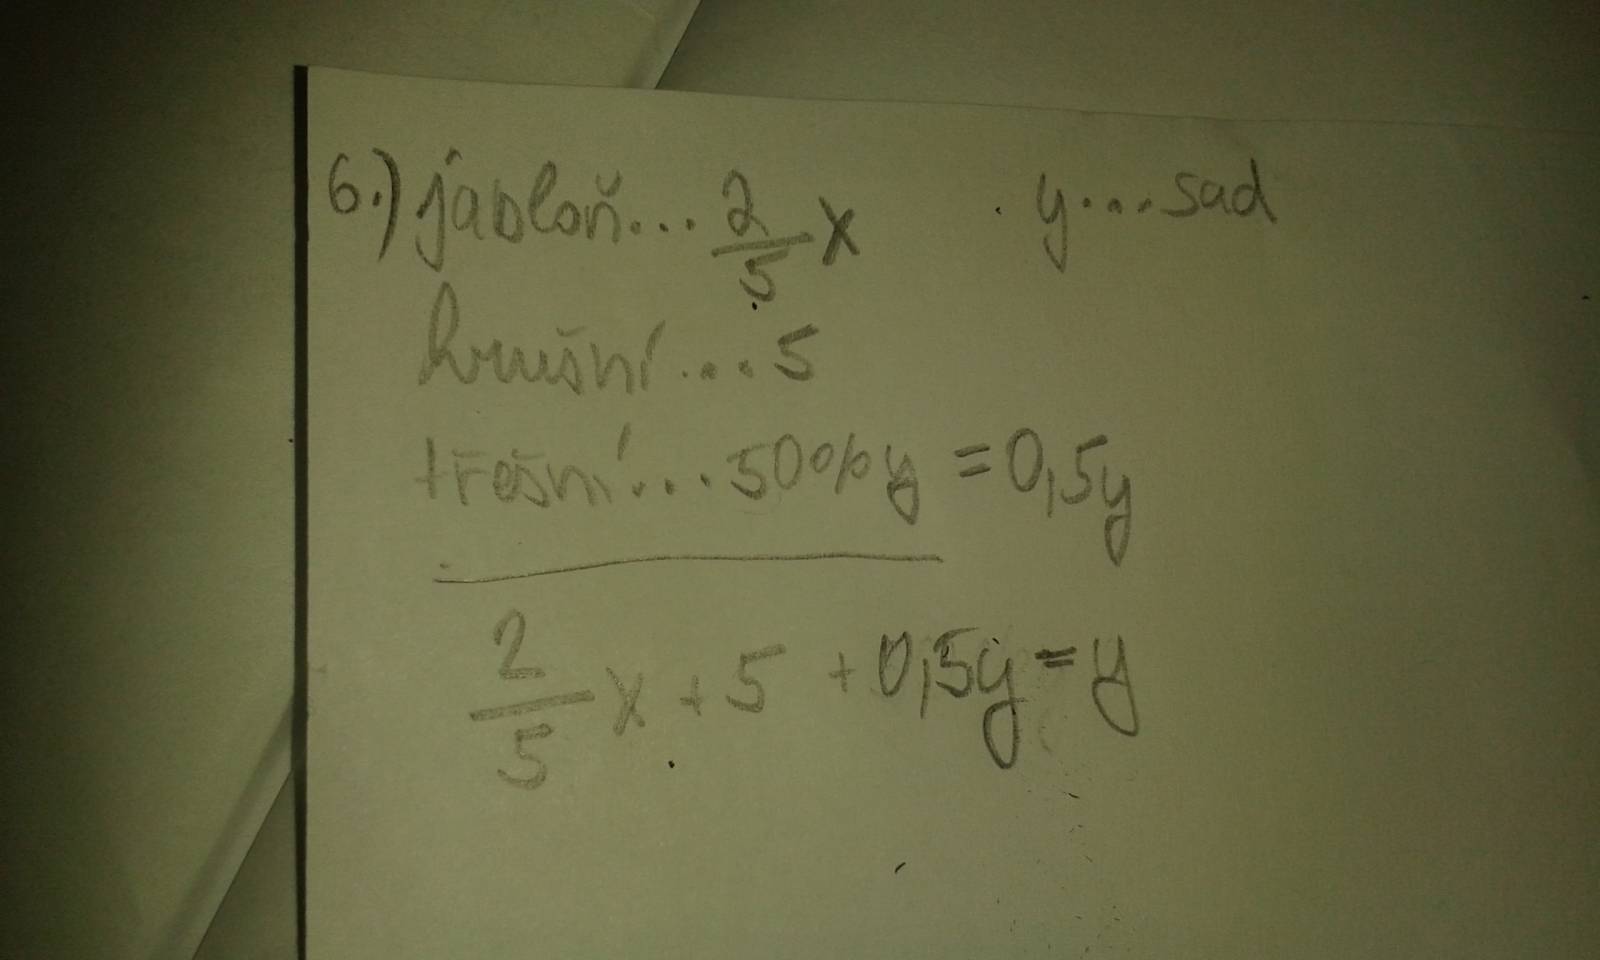 6.) jabloň... 2/5 x y...sad
hrušní...5
třešní...50%y = 0,5y
2/5 x + 5 + 0,5y = y